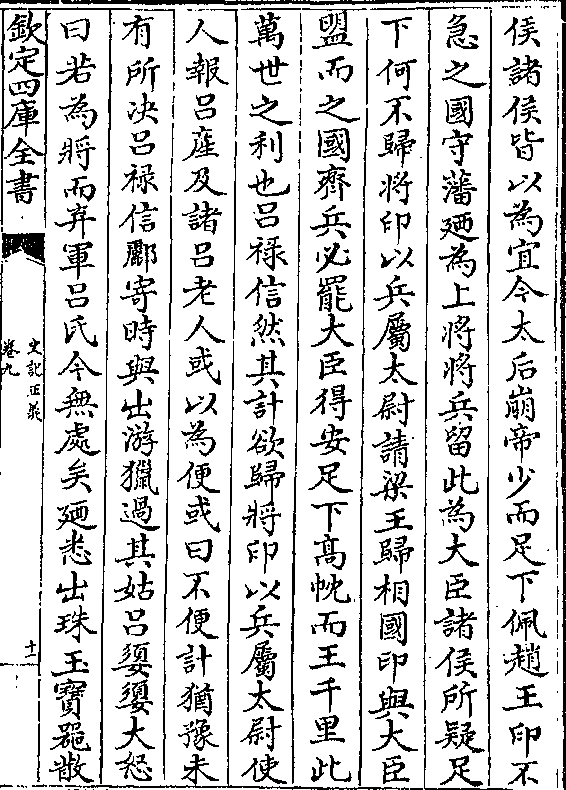 侯諸侯皆以為宜今太后崩帝少而足下佩趙王印不
急之國守藩廼為上將將兵留此為大臣諸侯所疑足
下何不歸將印以兵屬太尉請梁王歸相國印與大臣
盟而之國齊兵必罷大臣得安足下髙忱而王千里此
萬世之利也呂祿信然其計欲歸將印以兵屬太尉使
人報呂産及諸呂老人或以為便或曰不便計猶豫未
有所決呂祿信酈寄時與出游獵過其姑呂嬃嬃大怒
曰若為將而弃軍呂氏今無處矣廼悉出珠玉寶器散
欽定四庫全書
史記正義
卷九
十一